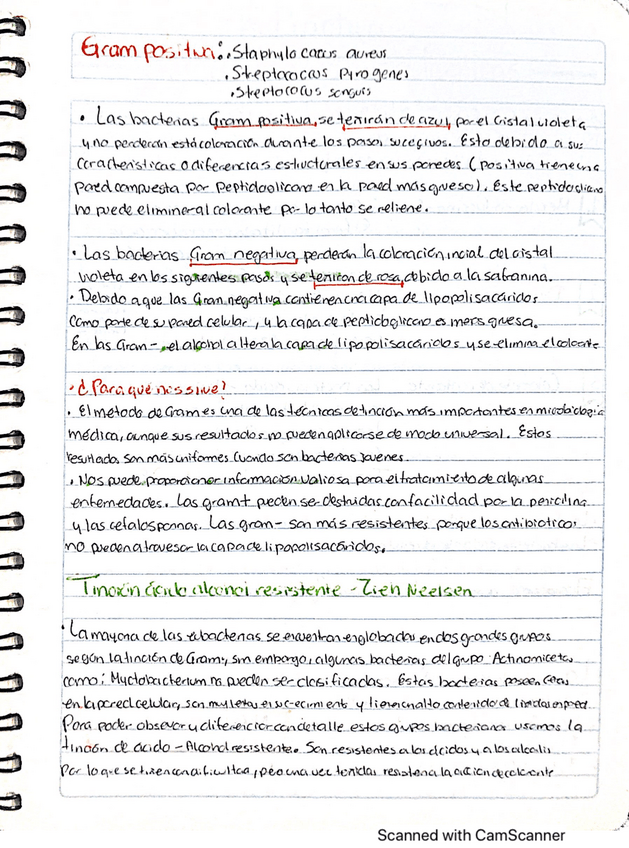 Gram positiva: . Staphylo cacus aureus
. Streptococcus pyrogenes
. Streptococus sanguis
• Las bacterias Gram positiva, se teñirán de azul, por el cristal violeta
y no perderán está coloración durante los pasos sucesivos. Esto debido a sus
características o diferencias estructurales en sus paredes (positiva tiene una
pared compuesta por Peptidoglicano en la pared más grueso). Este peptidoglicano
no puede eliminar al colorante por lo tanto se retiene.
• Las bacterias Gram negativa, perderán la coloración incial del cristal
violeta en los siguientes pasos y se teñirán de rosa, debido a la safranina.
• Debido a que las Gram negativa contienen una capa de lipopolisacáridos
como parte de su pared celular, y la capa de peptidoglicano es menos gruesa.
En las Gram - el alcohol altera la capa de lipopolisacáridos y se elimina el colorante
• ¿Para qué nos sirve?
• El método de Gram es una de las técnicas de tinción más importantes en microbiología
médica, aunque sus resultados no pueden aplicarse de modo universal. Estos
resultados son más uniformes cuando son bacterias jovenes.
. Nos puede proporcionar información valiosa para el tratamiento de algunas
enfermedades. Las gram+ pueden ser destruidas con facilidad por la penicilina
y las cefalosporinas. Las gram- son más resistentes porque los antibioticos
no pueden atravesar la capa de lipopolisacáridos.
Tinción ácido alcohol resistente - Zien Neelsen
• La mayoría de las eubacterias se encuentran englobadas en dos grandes grupos
según la tinción de Gram, sin embargo, algunas bacterias del grupo Actinomicetes
como: Myctobacterium no pueden ser clasificadas. Estas bacterias poseen ceras
en la pared celular, son muy lentas en su crecimiento y tienen alto contenido de lípidos en pared
Para poder observar y diferenciar con detalle estos grupos bacterianos usamos la
tinción de ácido - Alcohol resistente. Son resistentes a los ácidos y a los alcalis
por lo que se tiñen con dificultad, pero una vez teñidas resisten a la acción decolorante
Scanned with CamScanner